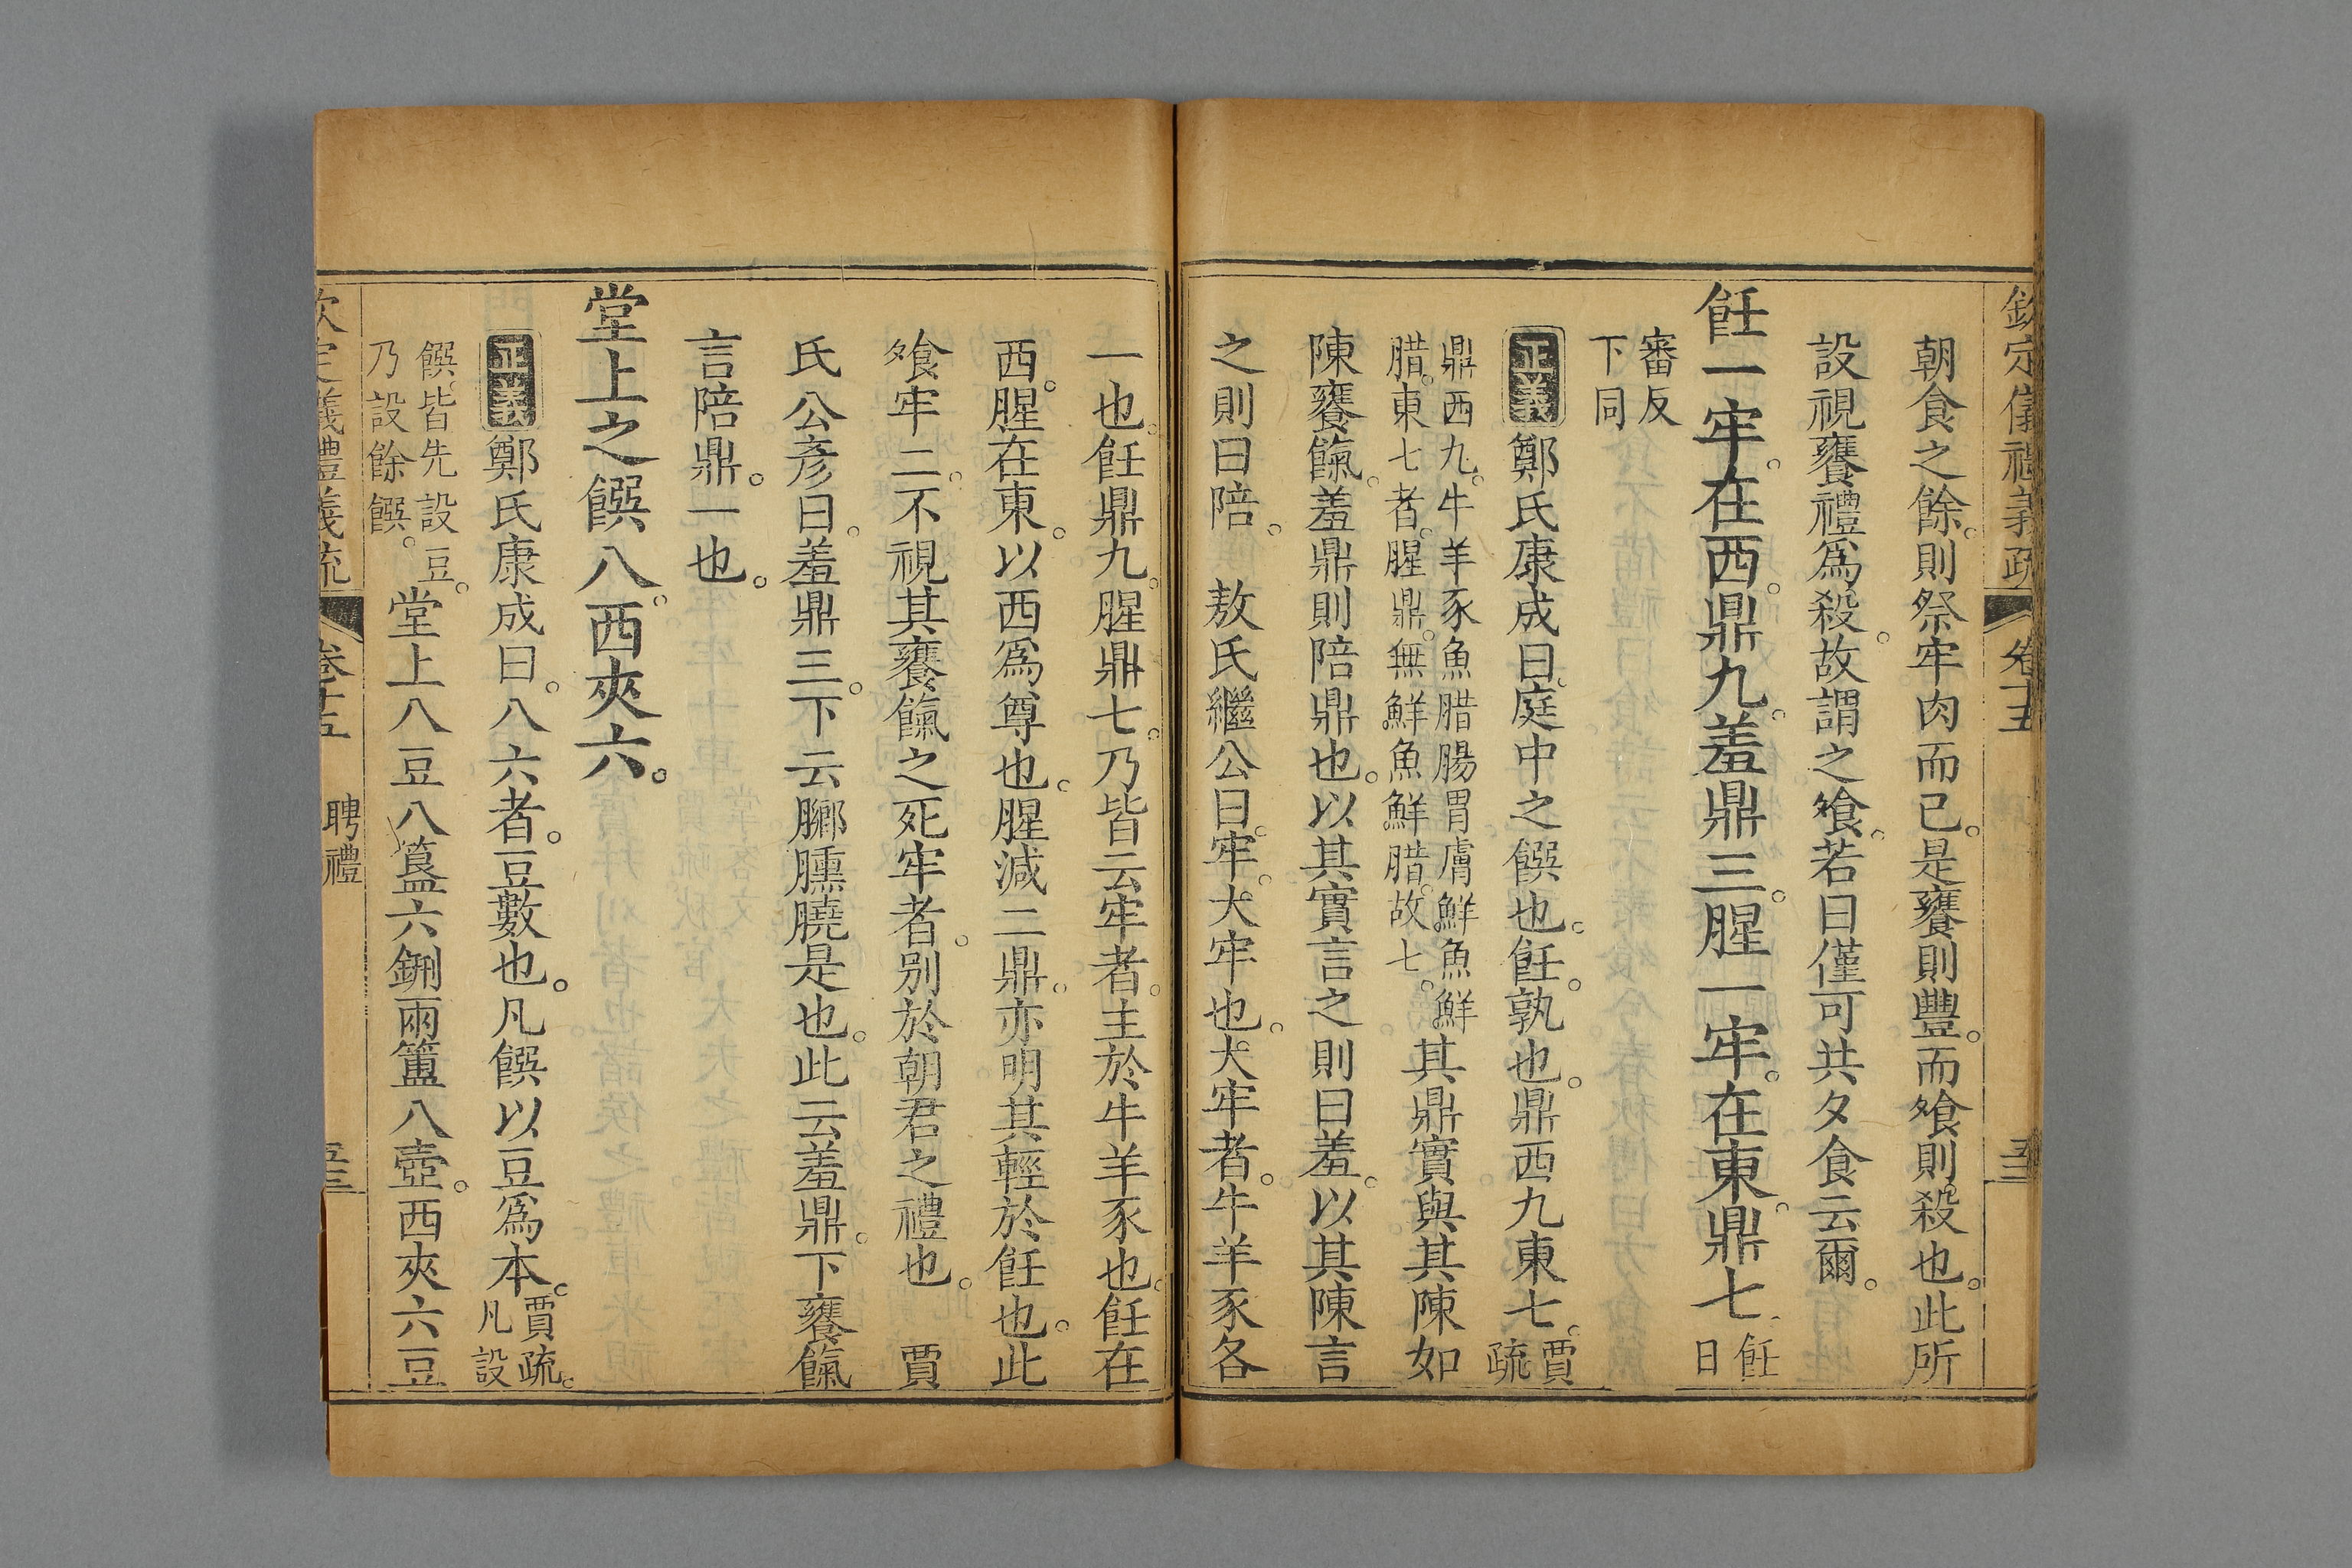 欽定儀禮義疏 卷十五
朝食之餘則祭牢肉而已是饔則豐而飧則殺也此所
設視饔禮爲殺故謂之飧若曰僅可共夕食云爾
飪一牢在西鼎九羞鼎三腥一牢在東鼎七飪日
審反下同
正義鄭氏康成曰庭中之饌也飪孰也鼎西九東七賈疏
鼎西九牛羊豕魚腊腸胃膚鮮魚鮮腊東七者腥鼎無鮮魚鮮腊故七其鼎實與其陳如
陳饔餼羞鼎則陪鼎也以其實言之則曰羞以其陳言
之則曰陪 敖氏繼公曰牢大牢也大牢者牛羊豕各
一也飪鼎九腥鼎七乃皆云牢者主於牛羊豕也飪在
西腥在東以西爲尊也腥減二鼎亦明其輕於飪也此
飧牢二不視其饔餼之死牢者别於朝君之禮也 賈
氏公彥曰羞鼎三下云膷臐膮是也此云羞鼎下饔餼
言陪鼎一也
堂上之饌八西夾六
正義鄭氏康成曰八六者豆數也凡饌以豆爲本賈疏凡設
饌皆先設豆乃設餘饌堂上八豆八簋六鉶兩簠八壺西夾六豆
欽定儀禮義疏 卷十五 聘禮